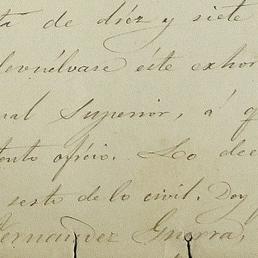 ta de diéz y siete
devuélvase éste exhor
nal Superior, á q
tento oficio. Lo dec
sesto de lo civil. Doy
Fernandez Guerra